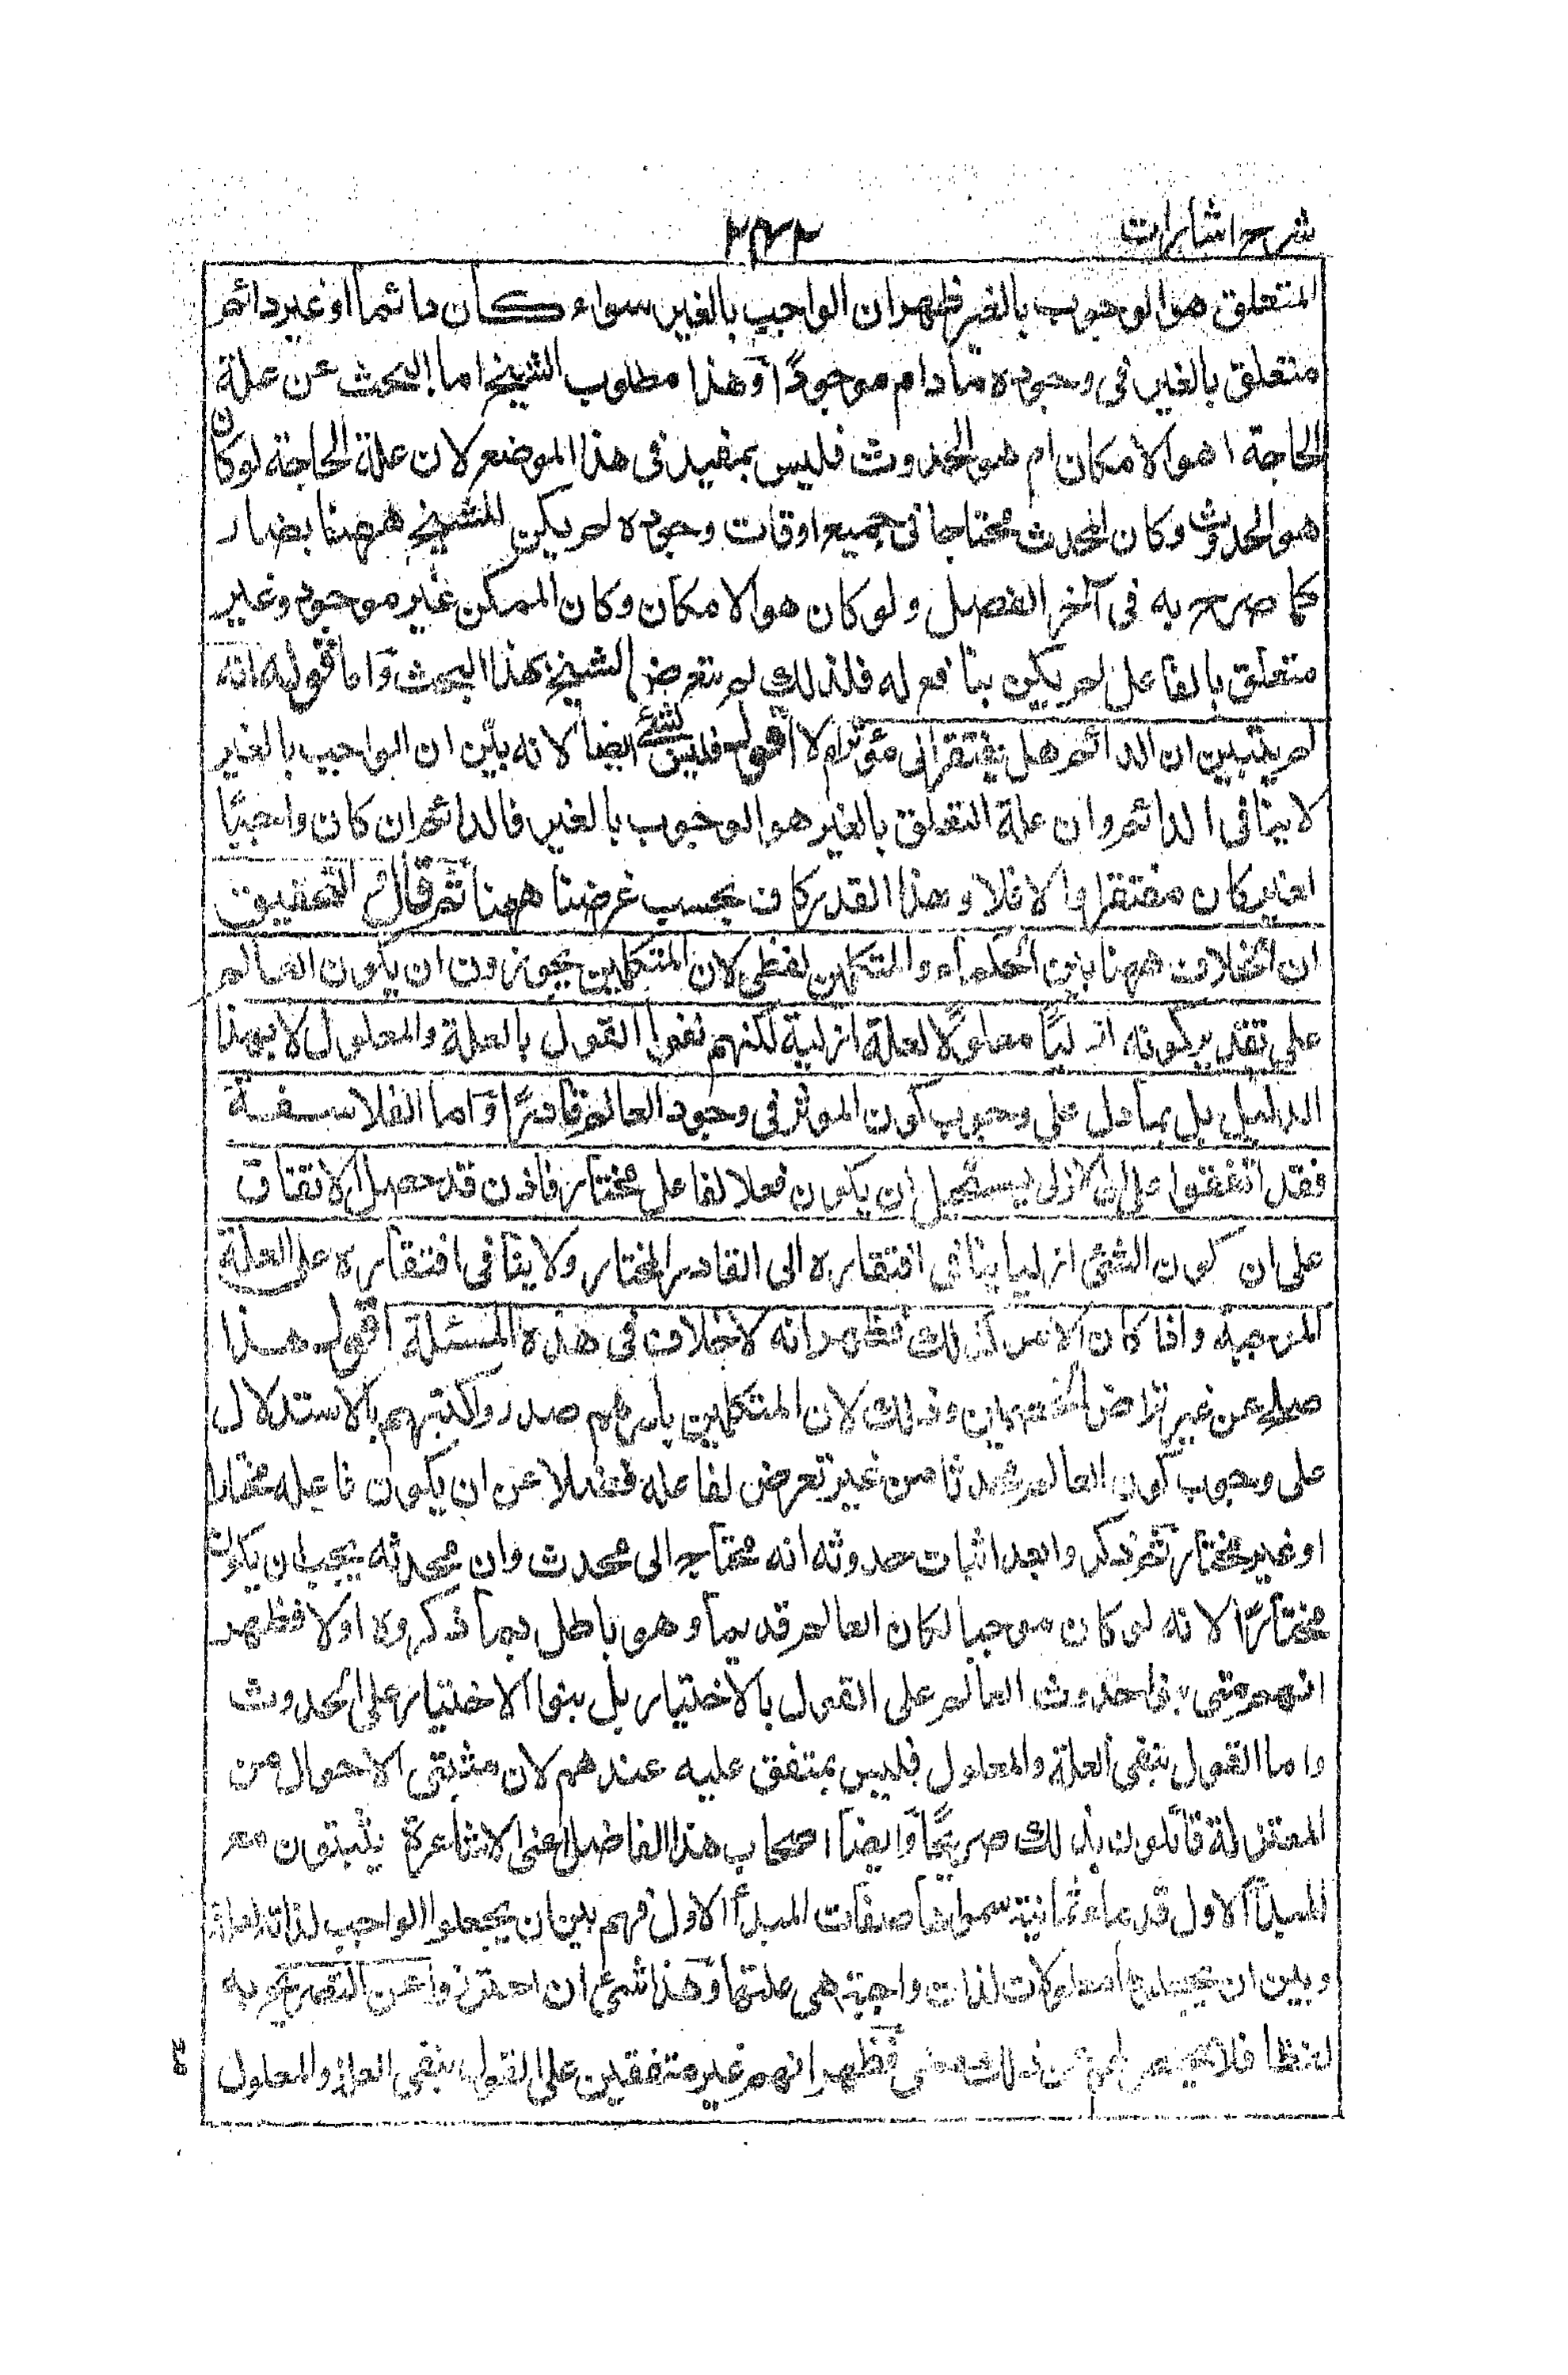 شرح اشارات ٢٤٢
المتعلق هو الوجوب بالغير فظهر ان الواجب بالغير سواء كان دائما او غير دائم
متعلق بالغير فى وجوده ما دام موجودًا وهذا مطلوب الشيخ اما البحث عن علة
الحاجة اهو الامكان ام هو الحدوث فليس بمفيد فى هذا الموضع لان علة الحاجة لو كان
هو الحدوث وكان المحدث محتاجا فى جميع اوقات وجوده لم يكن للشيخ ههنا بضار
كما صرح به فى آخر الفصل ولو كان هو الامكان وكان الممكن غير موجود وغير
متعلق بالفاعل لم يكن بنافع له فلذلك لم يتعرض الشيخ لهذا البحث واما قوله انه
لم يتبين ان الدائم هل يفتقر الى مؤثر ام لا اقول فليس بشئ ايضا لانه بيّن ان الواجب بالغير
لا ينافى الدائم وان علة التعلق بالغير هو الوجوب بالغير فالدائم ان كان واجبًا
لغيره كان مفتقرا والا فلا وهذا القدر كاف بحسب غرضنا ههنا ثم قال والتحقيق
ان الخلاف ههنا بين الحكماء والمتكلمين لفظى لان المتكلمين يجوزون ان يكون العالم
على تقدير كونه ازليًا معلولًا لعلة ازلية لكنهم نفوا القول بالعلة والمعلول لا بهذا
الدليل بل بما دل على وجوب كون الموثر فى وجود العالم قادرًا واما الفلاسفة
فقد اتفقوا على ان الازلى يستحيل ان يكون فعلا لفاعل مختار فاذن قد حصل الاتفاق
على ان كون الشئ ازليا ينافى افتقاره الى القادر المختار ولا ينافى افتقاره على العلة
الموجبة واذا كان الامر كذلك فظهر انه لا خلاف فى هذه المسئلة اقول هذا
صلح من غير تراض الخصمين وذلك لان المتكلمين باسرهم صدروا كتبهم بالاستدلال
على وجوب كون العالم محدثا من غير تعرض لفاعله فضلا عن ان يكون فاعله مختارا
او غير مختار ثم ذكروا بعد اثبات حدوثه انه محتاج الى محدث وان محدثه يجب ان يكون
مختارًا لانه لو كان موجبا لكان العالم قديما وهو باطل بما ذكروه اولا فظهر
انهم ما بنوا حدوث العالم على القول بالاختيار بل بنوا الاختيار على الحدوث
واما القول بنفى العلة والمعلول فليس بمتفق عليه عندهم لان مثبتى الاحوال من
المعتزلة قائلون بذلك صريحًا وايضا اصحاب هذا الفاضل اعنى الاشاعرة يثبتون مع
المبدأ الاول قدماء ثمانية سموها صفات المبدأ الاول فهم بين ان يجعلوا الواجب لذاته تسعة
وبين ان يجعلوها معلولات لذات واجبة هى علتها وهذا شئ ان احترزوا عن التصريح به
لفظا فلا محيص لهم عن ذلك معنى فظهر انهم غير متفقين على القول بنفى العلة والمعلول